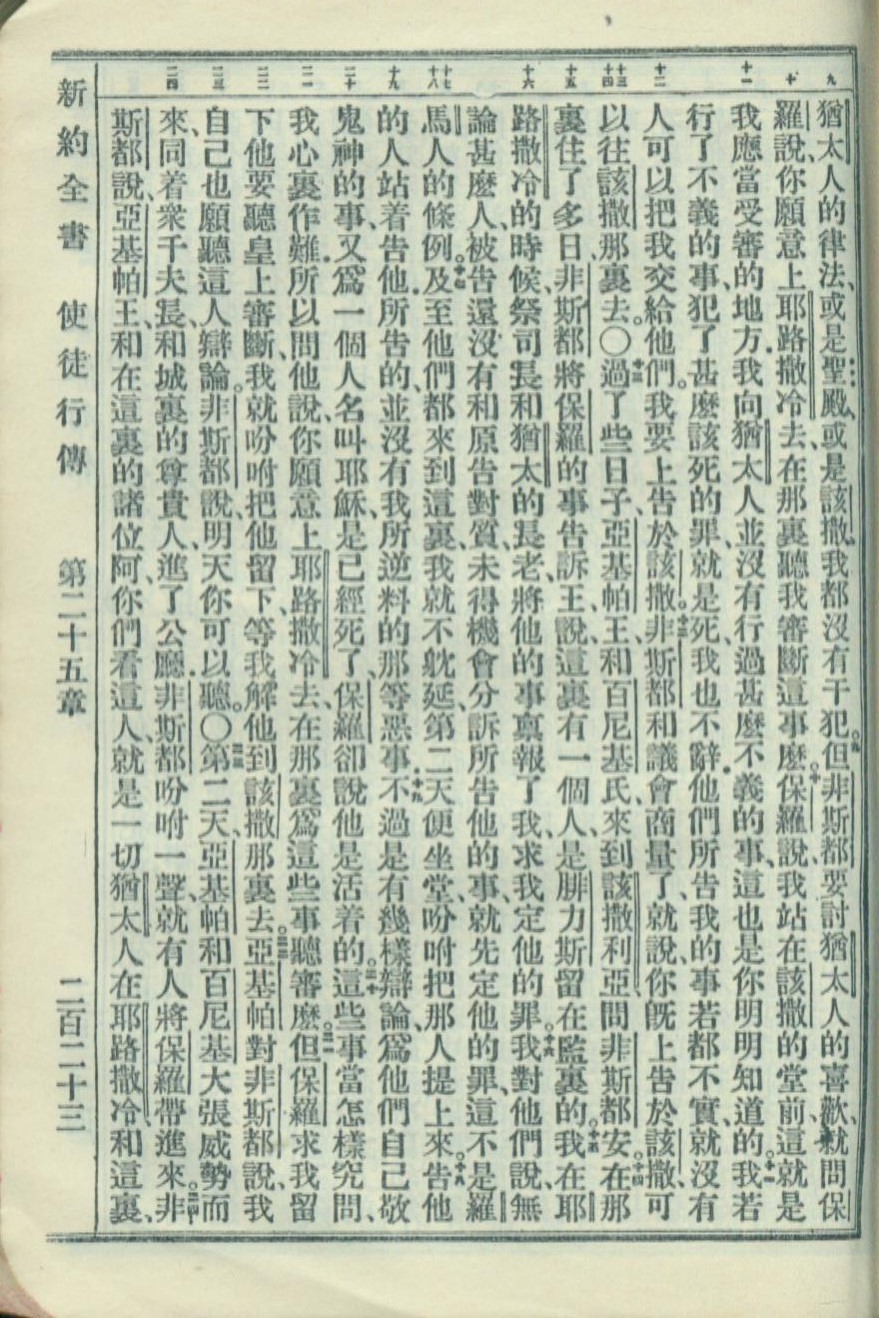 九 十 十一 十二 十三 十四 十五 十六 十七 十八 十九 二十 二一 二二 二三 二四
猶太人的律法、或是聖殿、或是該撒、我都沒有干犯。九但非斯都要討猶太人的喜歡、就問保
羅說、你願意上耶路撒冷去、在那裏聽我審斷這事麼。十保羅說、我站在該撒的堂前、這就是
我應當受審的地方．我向猶太人並沒有行過甚麼不義的事、這也是你明明知道的。十一我若
行了不義的事、犯了甚麼該死的罪、就是死、我也不辭．他們所告我的事若都不實、就沒有
人可以把我交給他們。我要上告於該撒。十二非斯都和議會商量了、就說、你旣上告於該撒、可
以往該撒那裏去。〇十三過了些日子、亞基帕王和百尼基氏、來到該撒利亞問非斯都安。十四在那
裏住了多日、非斯都將保羅的事告訴王、說、這裏有一個人、是腓力斯留在監裏的。十五我在耶
路撒冷的時候、祭司長和猶太的長老、將他的事禀報了我、求我定他的罪。十六我對他們說、無
論甚麼人、被告還沒有和原告對質、未得機會分訴所告他的事、就先定他的罪、這不是羅
馬人的條例。十七及至他們都來到這裏、我就不躭延、第二天便坐堂、吩咐把那人提上來。十八告他
的人站着告他．所告的、並沒有我所逆料的那等惡事．十九不過是有幾樣辯論、爲他們自己敬
鬼神的事、又爲一個人名叫耶穌、是已經死了、保羅卻說他是活着的。二十這些事當怎樣究問、
我心裏作難．所以問他說、你願意上耶路撒冷去、在那裏爲這些事聽審麼。二一但保羅求我留
下他、要聽皇上審斷、我就吩咐把他留下、等我解他到該撒那裏去。二二亞基帕對非斯都說、我
自己也願聽這人辯論。非斯都說、明天你可以聽。〇二三第二天、亞基帕和百尼基大張威勢而
來、同着衆千夫長、和城裏的尊貴人、進了公廳．非斯都吩咐一聲、就有人將保羅帶進來。二四非
斯都說、亞基帕王、和在這裏的諸位阿、你們看這人、就是一切猶太人、在耶路撒冷和這裏、
新約全書 使徒行傳 第二十五章 二百二十三